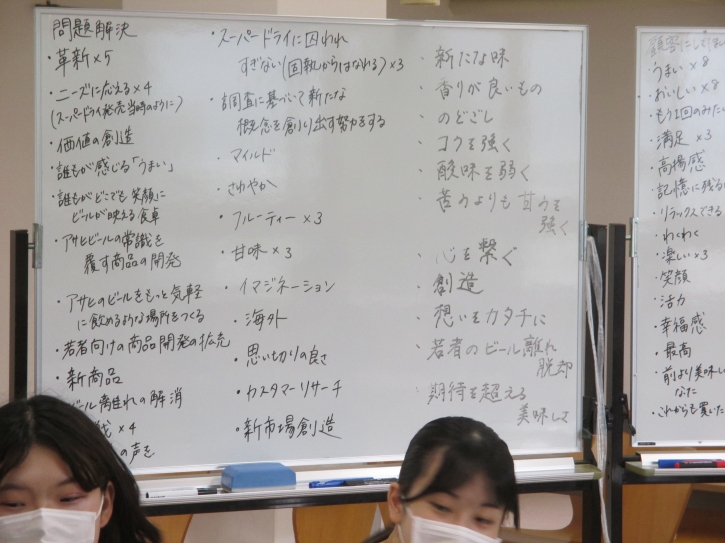 問題解決
・革新×5
・ニーズに応える×4
(スーパードライ発売当時のように)
・価値の創造
・誰もが感じる「うまい」
・誰もがどこでも笑顔に
ビールが映える食卓
・アサヒビールの常識を
覆す商品の開発
・アサヒのビールをもっと気軽
に飲めるような場所をつくる
・若者向けの商品開発の拡充
・新商品
ビール離れの解消
×4
の声を
・スーパードライに囚われ
すぎない(固執からはなれる)×3
・調査に基づいて新たな
概念を創り出す努力をする
・マイルド
・さわやか
・フルーティー×3
・甘味×3
・イマジネーション
・海外
・思い切りの良さ
・カスタマーリサーチ
・新市場創造
・新たな味
・香りが良いもの
・のどごし
・コクを強く
・酸味を弱く
・苦みよりも甘みを
強く
・心を繋ぐ
・創造
・想いをカタチに
・若者のビール離れ
脱却
・期待を超える
美味しさ
顧客にして
・うまい×8
・おいしい×8
・もう1回のみたい
・満足×3
・高揚感
・記憶に残る
・リラックスできる
・わくわく
・楽しい×3
・笑顔
・活力
・幸福感
・最高
・前より美味し
なった
・これからも買いた